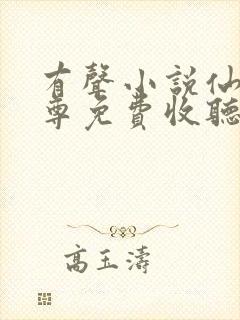 有聲小說仙
尊免費收聽
高玉濤